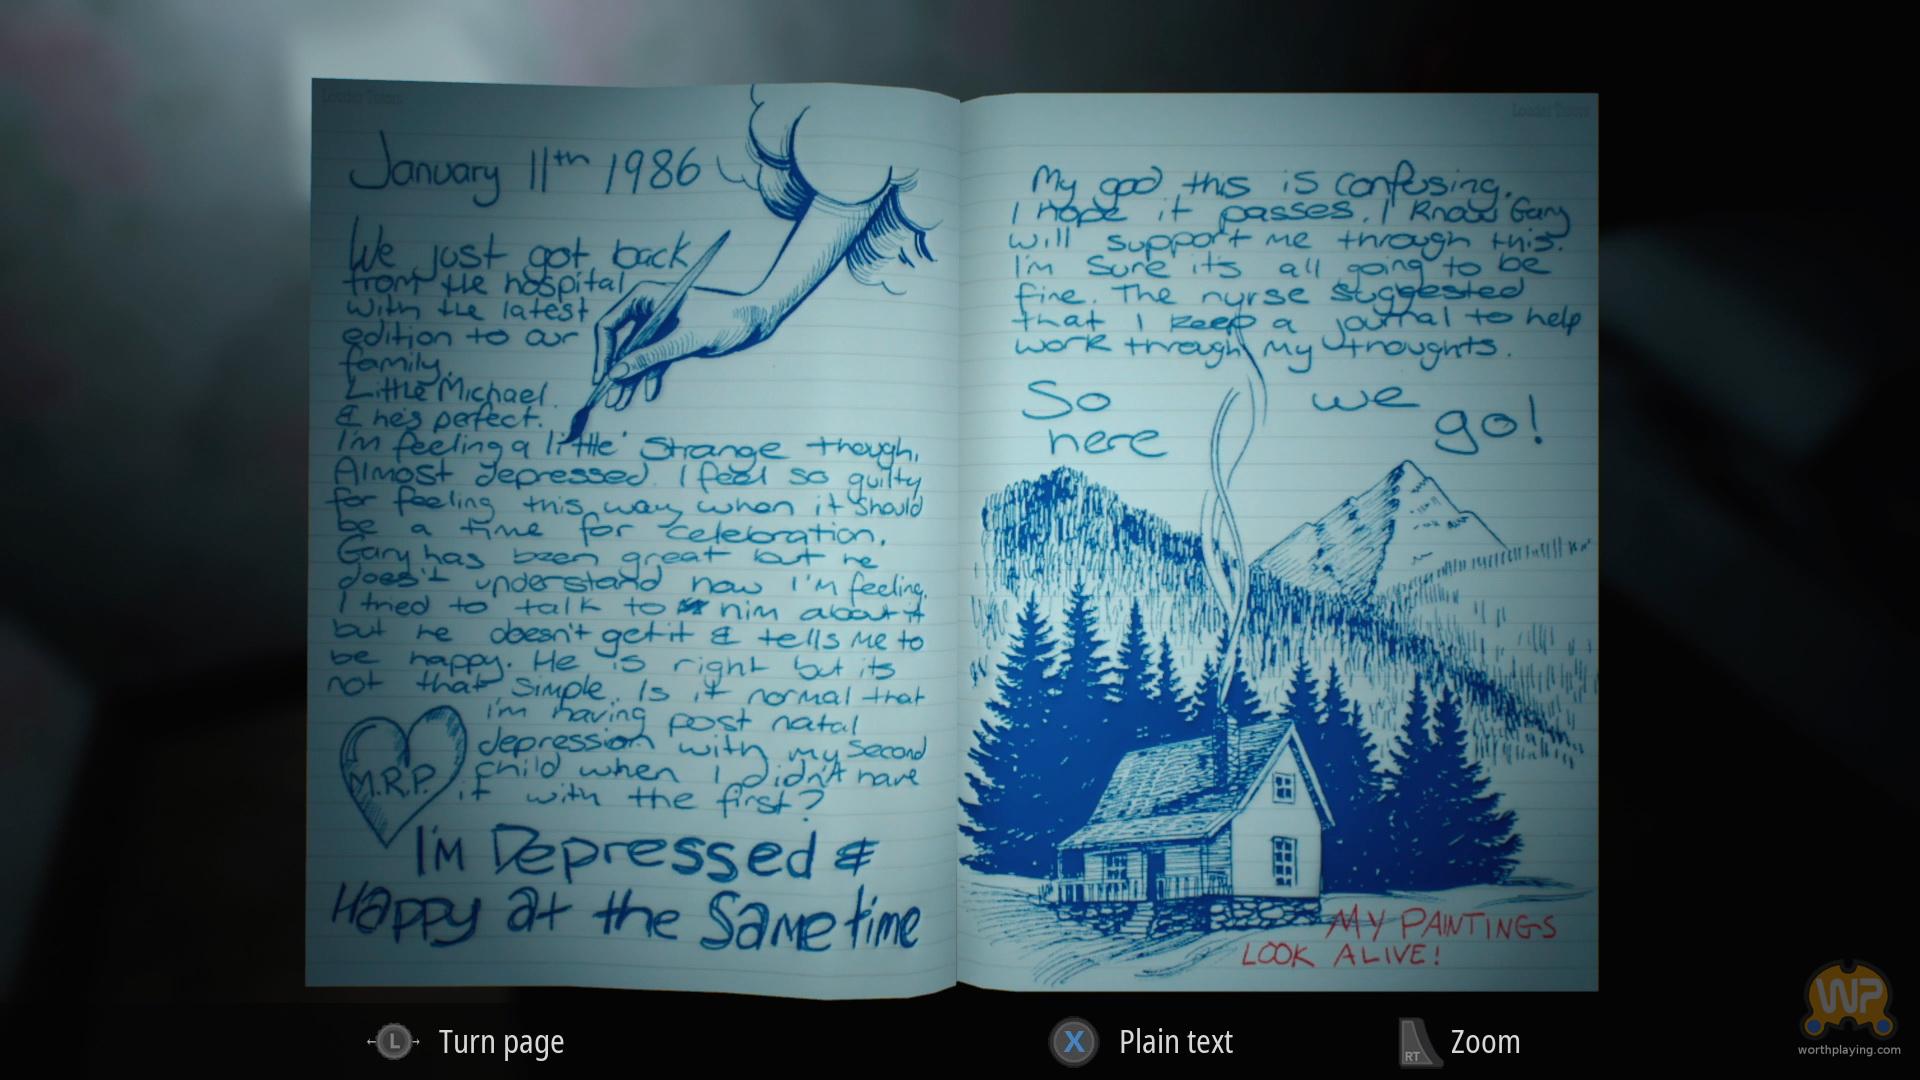 January 11th 1986
We just got back
from the hospital
with the latest
edition to our
family.
Little Michael
& he's perfect.
I'm feeling a little strange though,
Almost depressed. I feel so guilty
for feeling this way when it should
be a time for celebration.
Gary has been great but he
does't understand how I'm feeling.
I tried to talk to him about it
but he doesn't get it & tells me to
be happy. He is right but its
not that simple. Is it normal that
i'm having post natal
depression with my second
child when I didn't have
it with the first?
M.R.P.
I'm Depressed &
Happy at the Same time
My god this is confusing.
I hope it passes. I know Gary
will support me through this.
I'm sure its all going to be
fine. The nurse suggested
that I keep a journal to help
work through my thoughts.
So we
here go!
MY PAINTINGS
LOOK ALIVE!
L Turn page
X Plain text
RT Zoom
WP
worthplaying.com